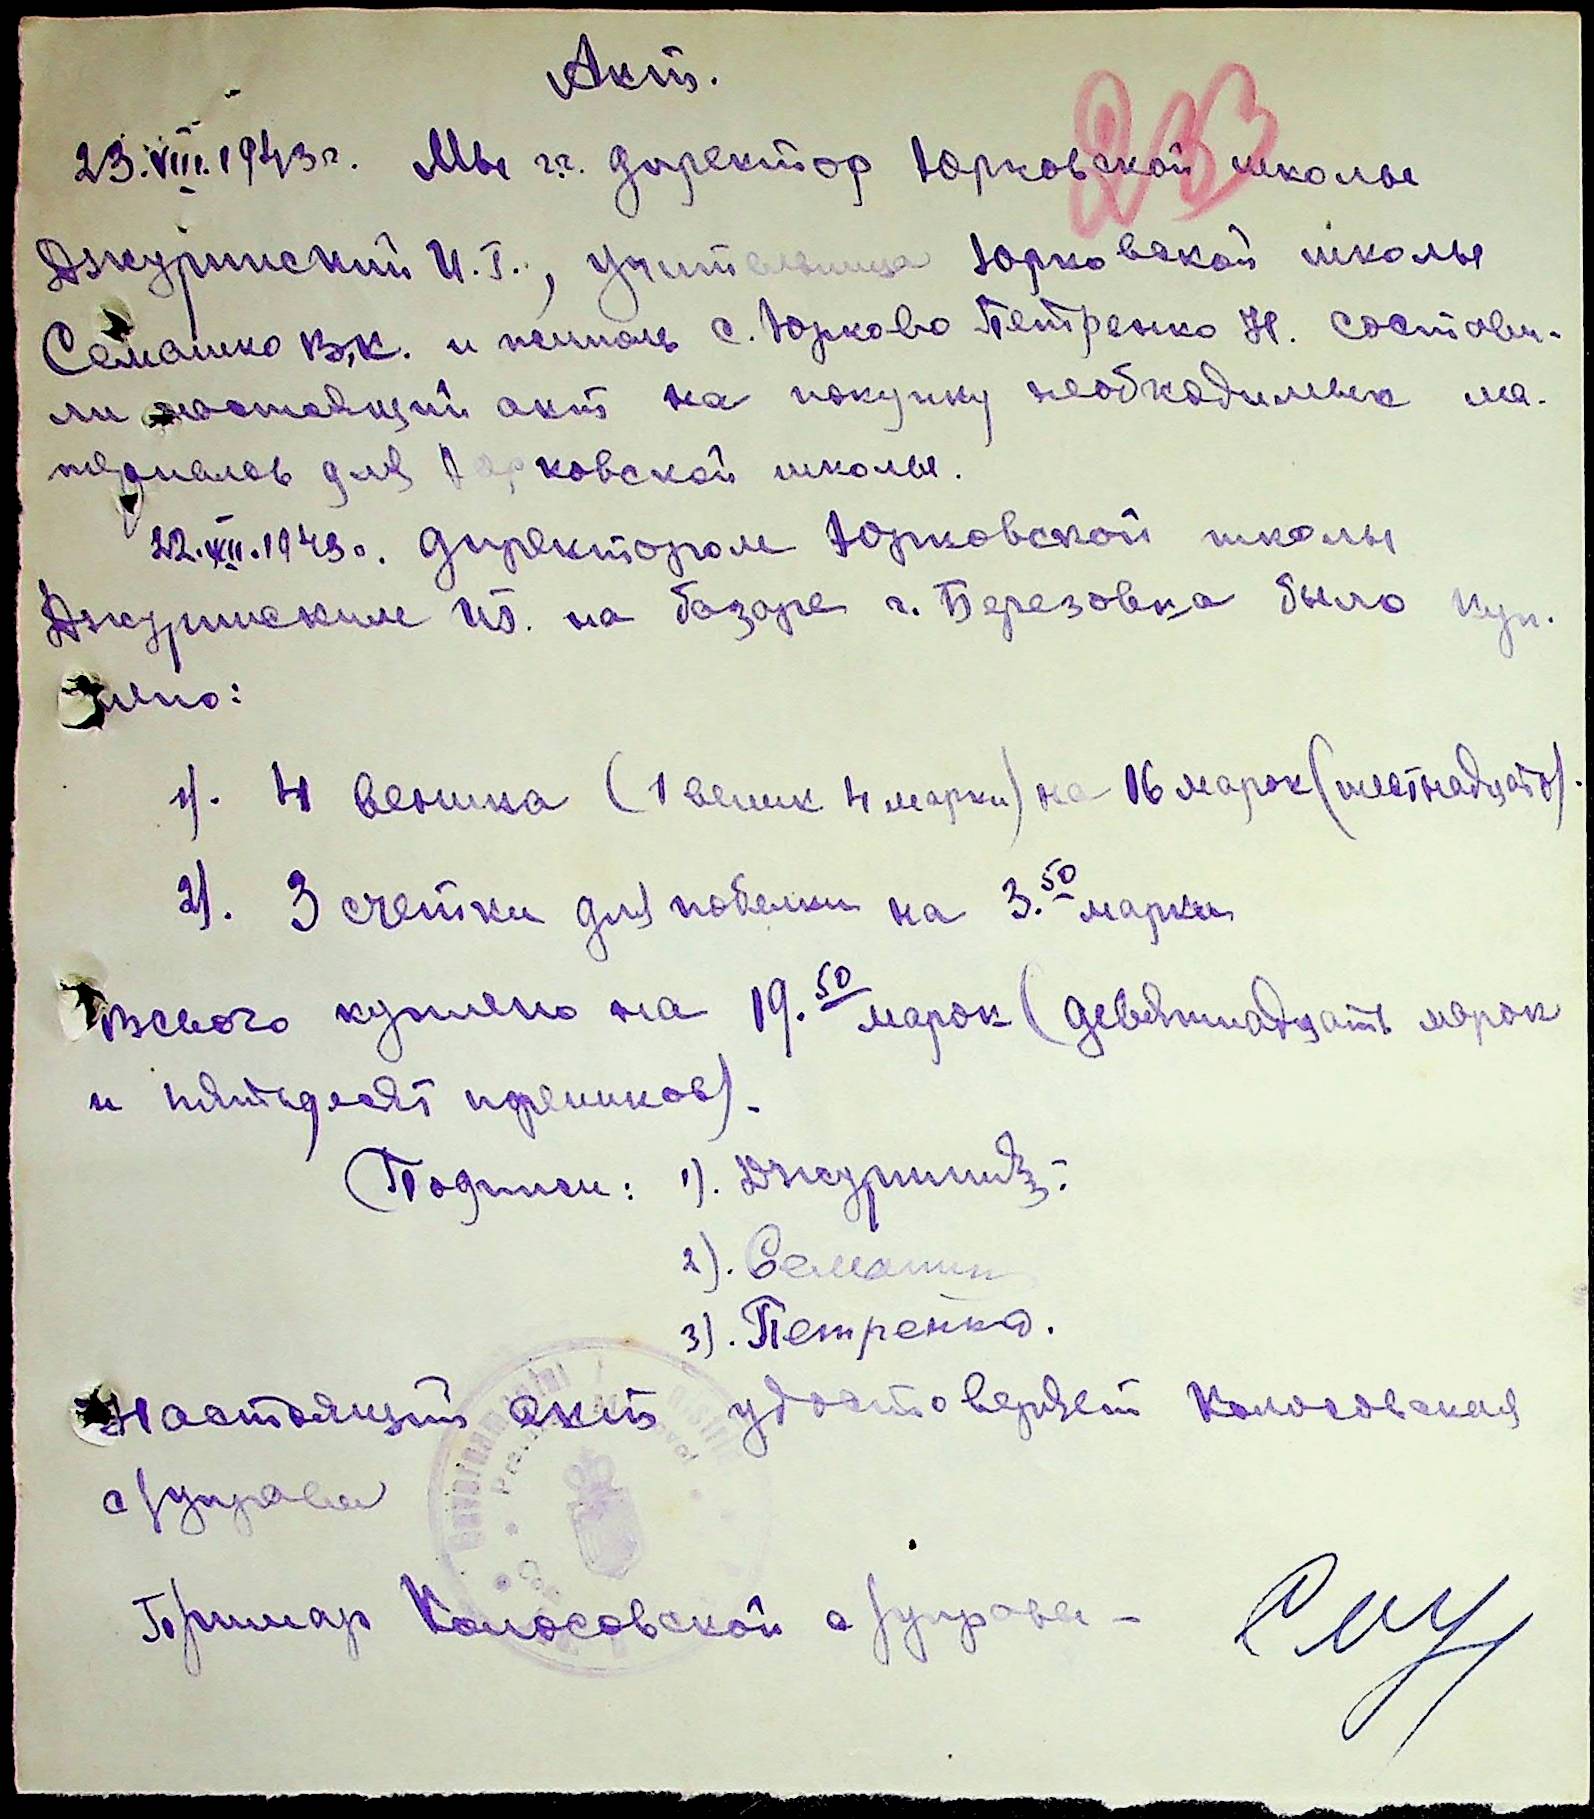 Акт.
233
23.VIII.1943г. Мы г.г. директор Юрковской школы
Джуринский И.Г., учительница Юрковской школы
Семашко В.К. и житель с. Юрково Петренко Н. состави-
ли настоящий акт на покупку необходимых ма-
териалов для Юрковской школы.
22.VIII.1943г. директором Юрковской школы
Джуринским И.Г. на базаре г. Березовка было куп-
лено:
1). 4 веника (1 веник 4 марки) на 16 марок (шестнадцать).
2). 3 счетки для побелки на 3.50 марки
Всього куплено на 19.50 марок (девятнадцать марок
и пятьдесят пфеников).
(Подписи: 1). Джуринский.
2). Семашко
3). Петренко.
Guvernământul
Настоящий акт удостоверяет Колосовская
с/управа
Примар Колосовской с/управы –